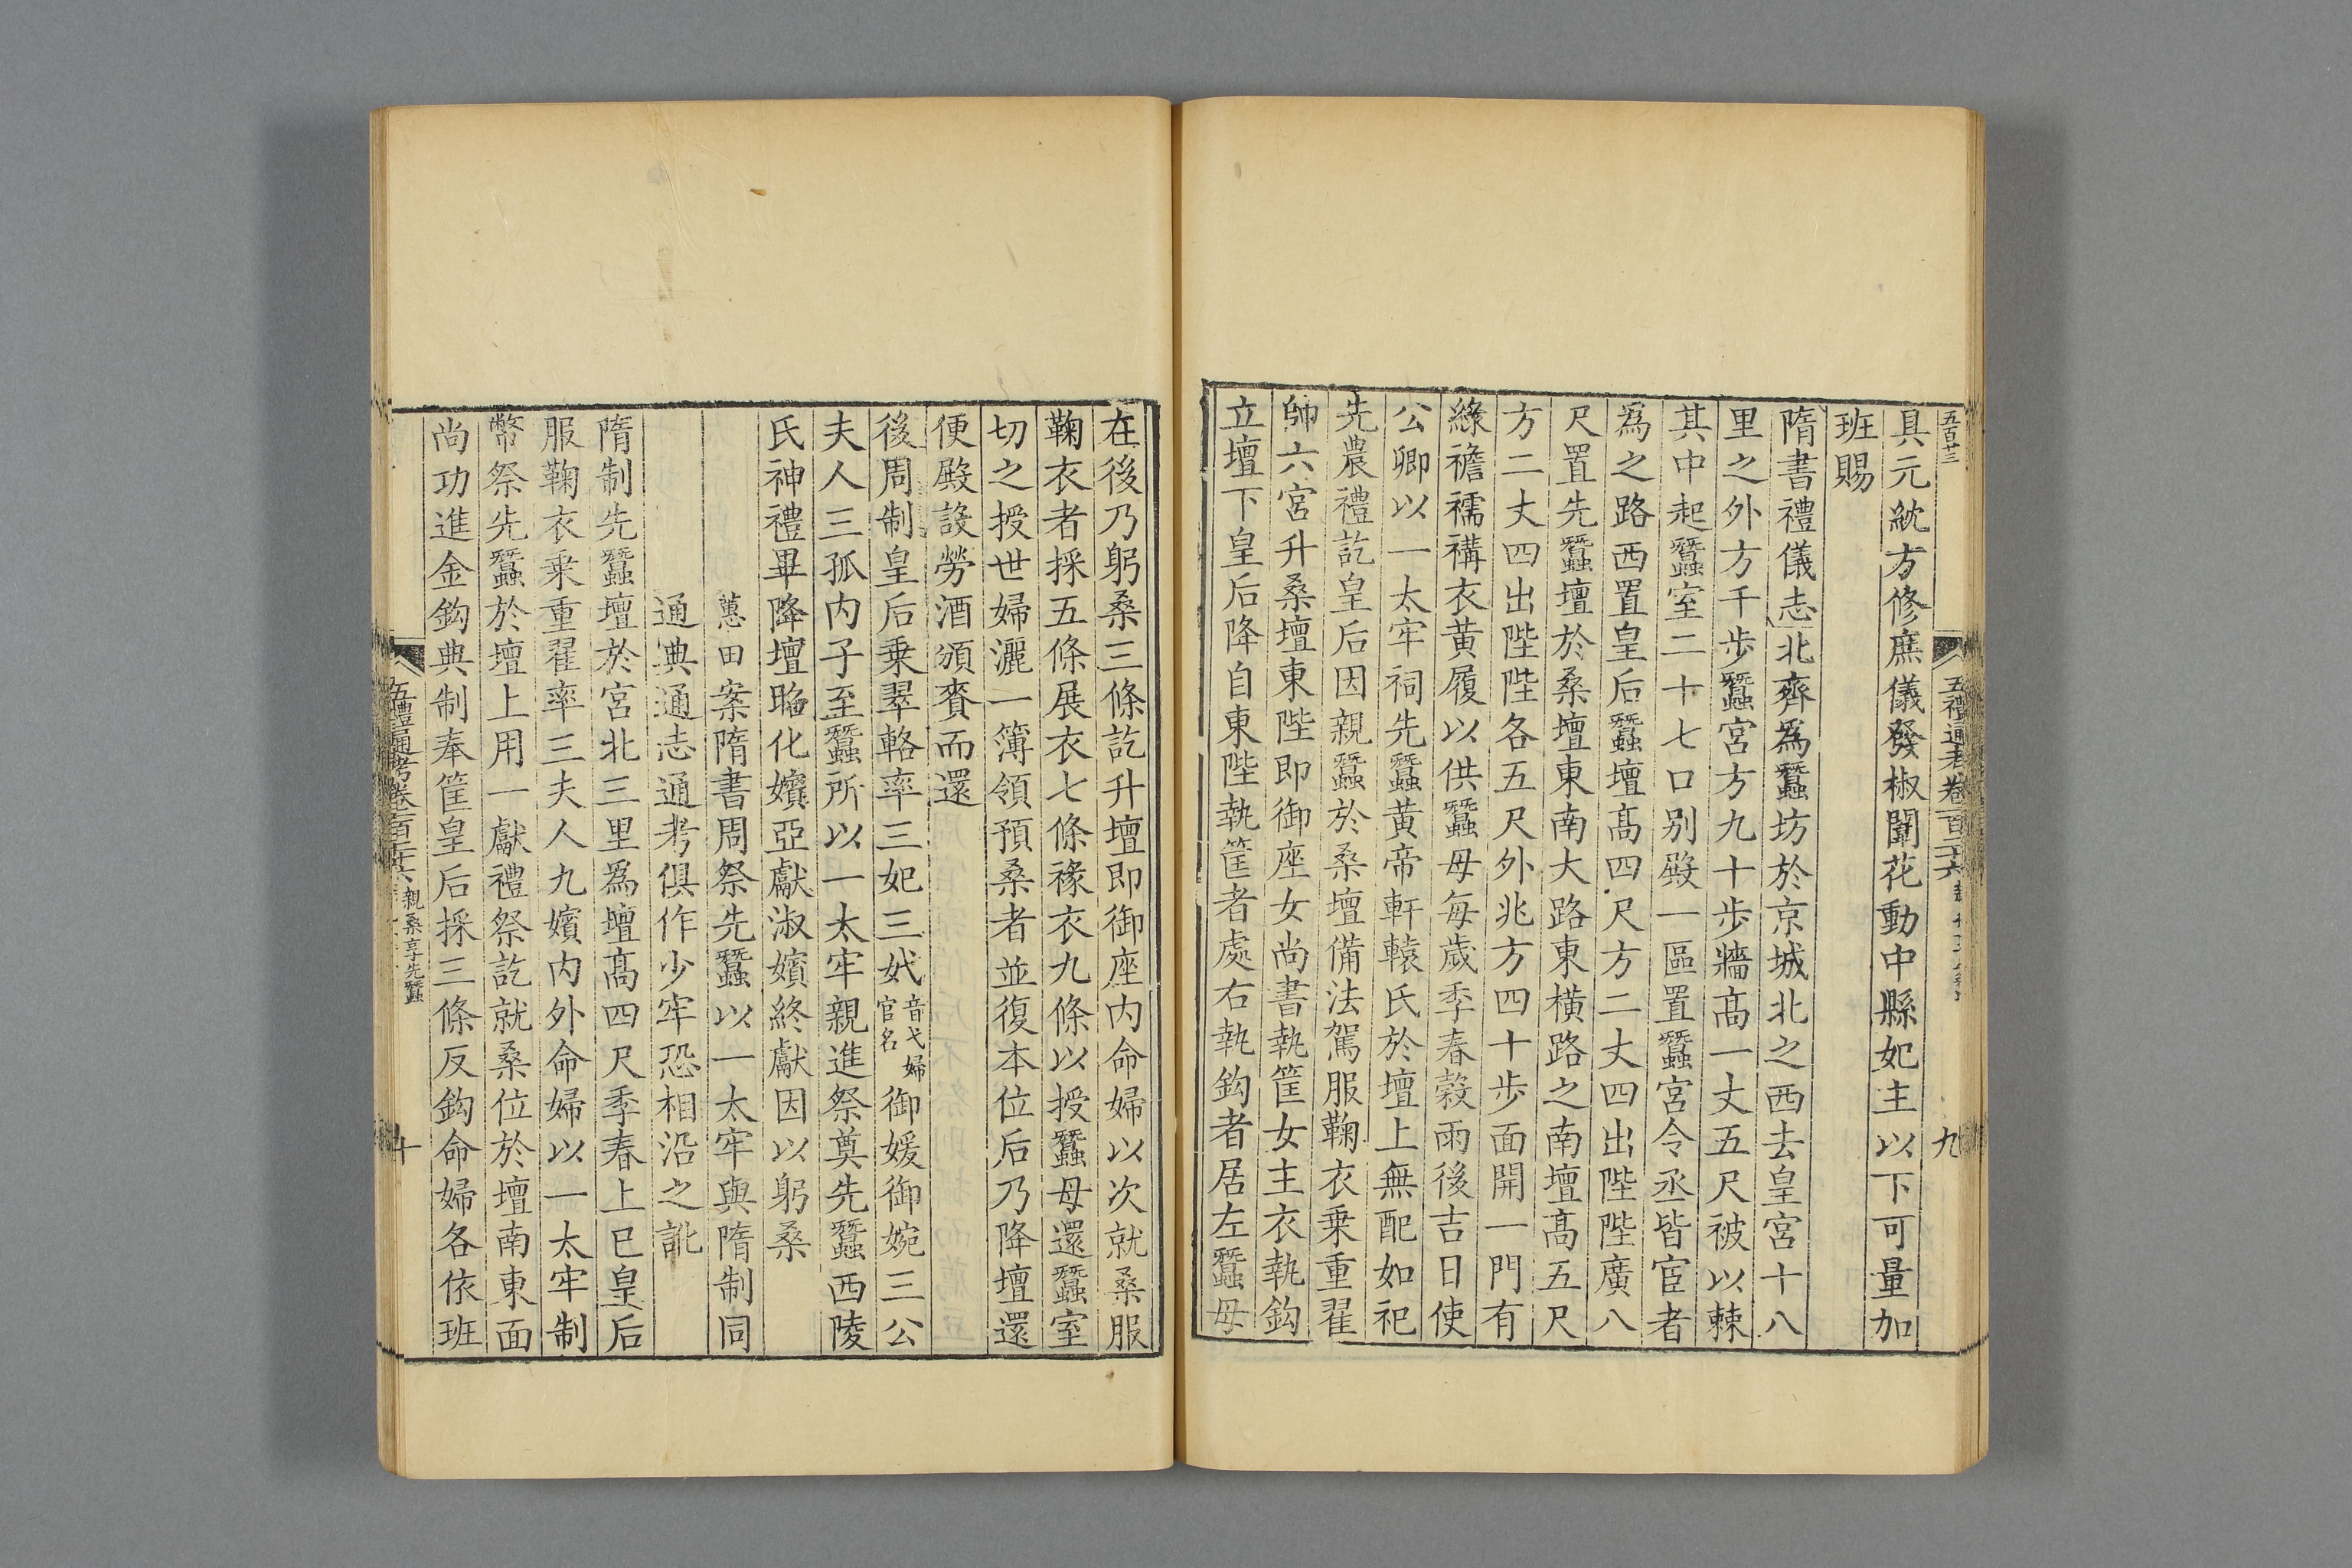 五百廿三
五禮通考卷一百二十六
九
具元紞方修庶儀發椒闈花動中縣妃主以下可量加
班賜
隋書禮儀志北齊爲蠶坊於京城北之西去皇宮十八
里之外方千步蠶宮方九十步牆髙一丈五尺被以棘
其中起蠶室二十七口别殿一區置蠶宮令丞皆宦者
爲之路西置皇后蠶壇髙四尺方二丈四出陛陛廣八
尺置先蠶壇於桑壇東南大路東橫路之南壇髙五尺
方二丈四出陛陛各五尺外兆方四十步面開一門有
綠襜襦褠衣黃履以供蠶母每歲季春穀雨後吉日使
公卿以一太牢祠先蠶黃帝軒轅氏於壇上無配如祀
先農禮訖皇后因親蠶於桑壇備法駕服鞠衣乗重翟
帥六宮升桑壇東陛即御座女尚書執筐女主衣執鈎
立壇下皇后降自東陛執筐者處右執鈎者居左蠶母
在後乃躬桑三條訖升壇即御座内命婦以次就桑服
鞠衣者採五條展衣七條褖衣九條以授蠶母還蠶室
切之授世婦灑一簿領預桑者並復本位后乃降壇還
便殿設勞酒頒賚而還
後周制皇后乗翠輅率三妃三㚤音弋婦官名御媛御婉三公
夫人三孤内子至蠶所以一太牢親進祭奠先蠶西陵
氏神禮畢降壇昭化嬪亞獻淑嬪終獻因以躬桑
蕙田案隋書周祭先蠶以一太牢與隋制同
通典通志通考俱作少牢恐相沿之訛
隋制先蠶壇於宮北三里爲壇髙四尺季春上巳皇后
服鞠衣乗重翟率三夫人九嬪内外命婦以一太牢制
幣祭先蠶於壇上用一獻禮祭訖就桑位於壇南東面
尚功進金鈎典制奉筐皇后採三條反鈎命婦各依班
五禮通考卷一百二十六 親桑享先蠶
十